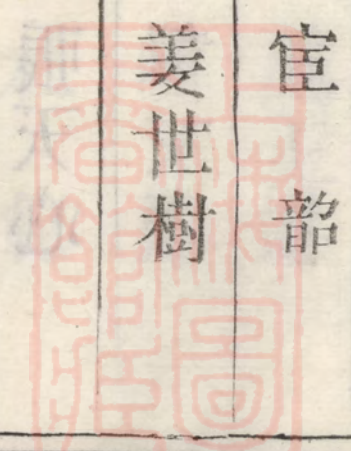 宦韶
姜世樹